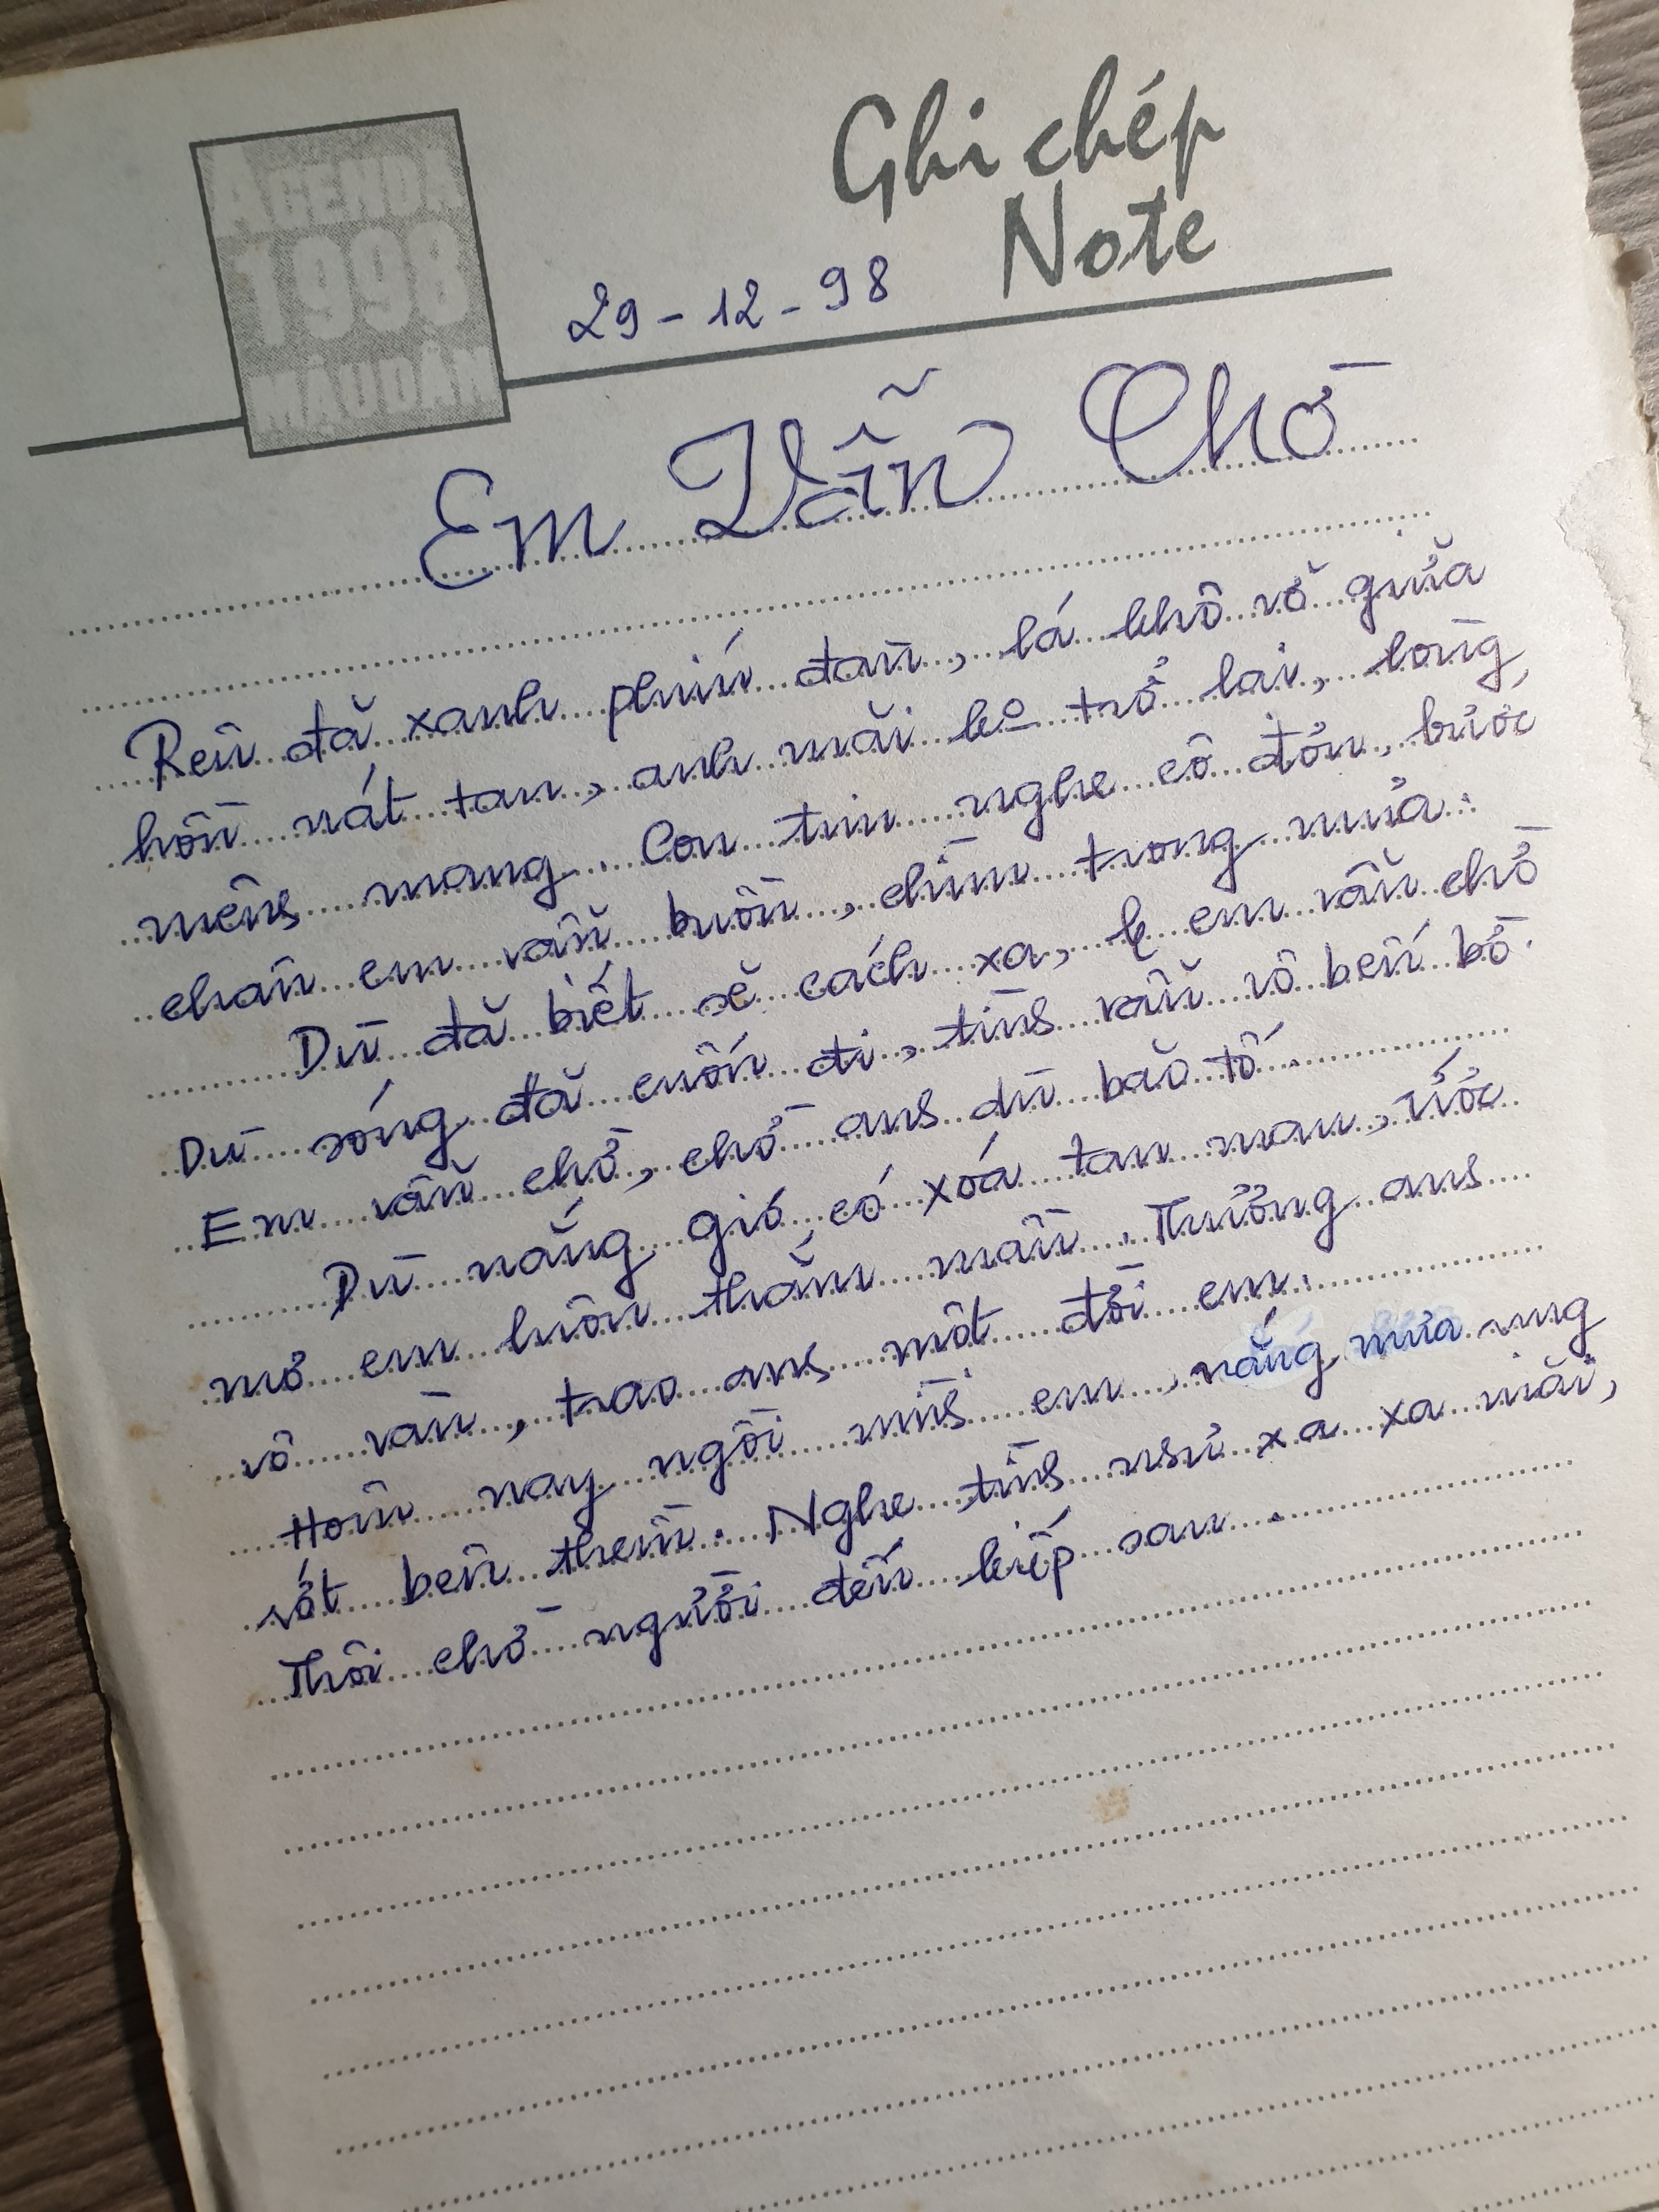 AGENDA
1998
MẬU DẦN
Ghi chép
Note
29-12-98
Em Vẫn Chờ
Rêu đã xanh phím đàn, lá khô vỡ giữa
hồn nát tan, anh mãi ko trở lại, lòng
mênh mang. Con tim nghe cô đơn, bước
chân em vẫn buồn, chìm trong mưa.
Dù đã biết sẽ cách xa, k em vẫn chờ
Dù sóng đã cuốn đi, tình vẫn vô bến bờ.
Em vẫn chờ, chờ anh dù bão tố.
Dù nắng gió, có xóa tan mau, ước
mơ em luôn thắm màu. Thương anh
vô vàn, trao anh một đời em.
Hôm nay ngồi mình em, nắng mưa rụng
rớt bên thềm. Nghe tình như xa xa mãi,
Thôi chờ người đến kiếp sau.